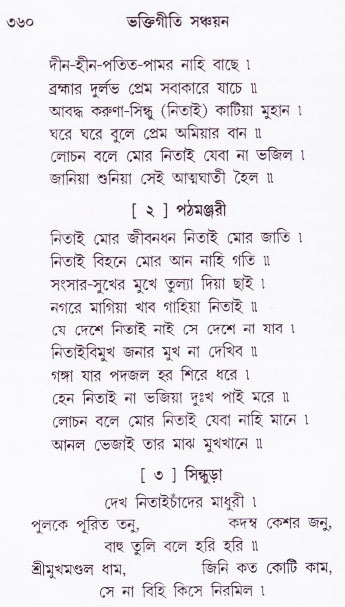 ৩৬০ ভক্তিগীতি সঞ্চয়ন
দীন-হীন-পতিত-পামর নাহি বাছে ৷
ব্রহ্মার দুর্লভ প্রেম সবাকারে যাচে ৷৷
আবদ্ধ করুণা-সিন্ধু (নিতাই) কাটিয়া মুহান ৷
ঘরে ঘরে বুলে প্রেম অমিয়ার বান ৷৷
লোচন বলে মোর নিতাই যেবা না ভজিল ৷
জানিয়া শুনিয়া সেই আত্মঘাতী হৈল ৷৷
[ ২ ] পঠমঞ্জরী
নিতাই মোর জীবনধন নিতাই মোর জাতি ৷
নিতাই বিহনে মোর আন নাহি গতি ৷৷
সংসার-সুখের মুখে তুল্যা দিয়া ছাই ৷
নগরে মাগিয়া খাব গাহিয়া নিতাই ৷৷
যে দেশে নিতাই নাই সে দেশে না যাব ৷
নিতাইবিমুখ জনার মুখ না দেখিব ৷৷
গঙ্গা যার পদজল হর শিরে ধরে ৷
হেন নিতাই না ভজিয়া দুঃখ পাই মরে ৷৷
লোচন বলে মোর নিতাই যেবা নাহি মানে ৷
আনল ভেজাই তার মাঝ মুখখানে ৷৷
[ ৩ ] সিন্ধুড়া
দেখ নিতাইচাঁদের মাধুরী ৷
পুলকে পূরিত তনু, কদম্ব কেশর জনু,
বাহু তুলি বলে হরি হরি ৷৷
শ্রীমুখমণ্ডল ধাম, জিনি কত কোটি কাম,
সে না বিহি কিসে নিরমিল ৷